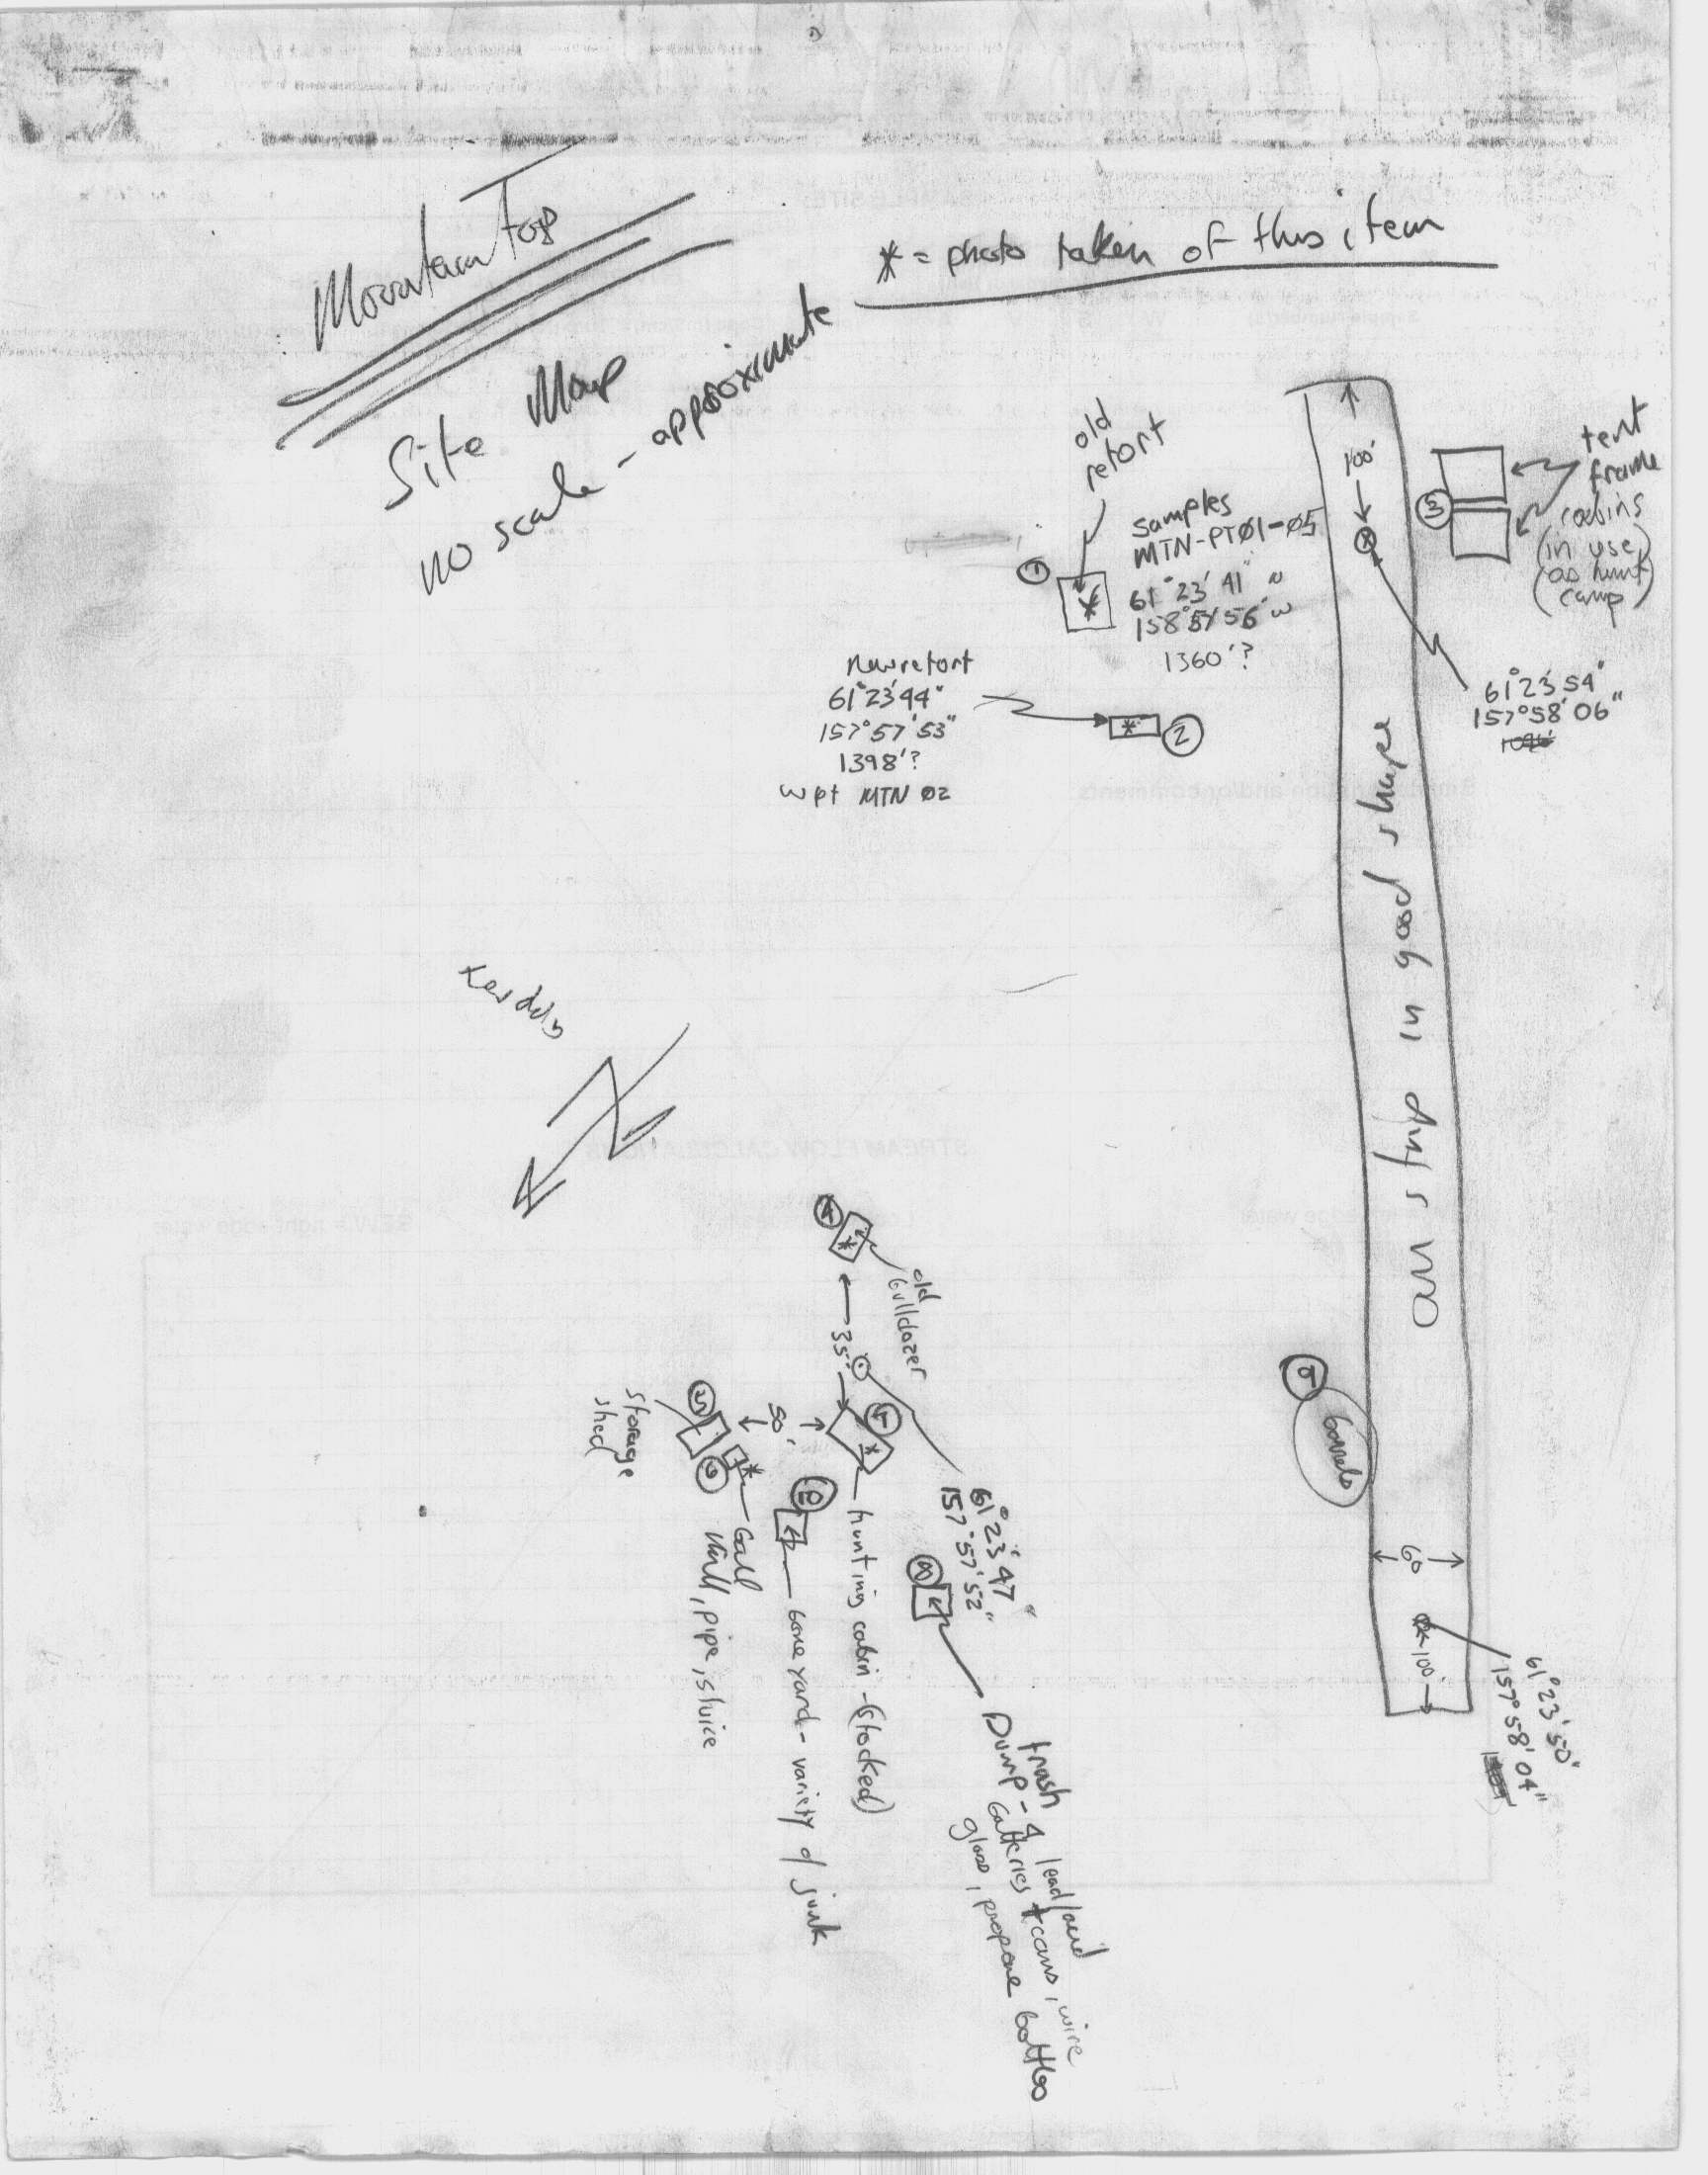 Mountain Top
Site Map
no scale - approximate
* = photo taken of this item
old
retort
1
*
Samples
MTN-PTØ1-Ø5
61° 23' 41" N
158° 57' 56" W
1360'?
New retort
61° 23' 44"
157° 57' 53"
1398'?
wpt MTN Ø2
*
2
100'
3
tent
frame
cabins
(in use)
(as hunt)
(camp)
61° 23' 54"
157° 58' 06"
air strip in good shape
9
barrels
60
100'
61° 23' 50"
157° 58' 04"
N
4
*
old
bulldozer
35'
7
*
50'
5
storage
shed
6
*
ball
mill, pipe, sluice
10
boneyard - variety of junk
hunting cabin - (stocked)
61° 23' 47"
157° 57' 52"
8
trash
Dump - 4 lead/acid
batteries + cans, wire
glass, propane bottles